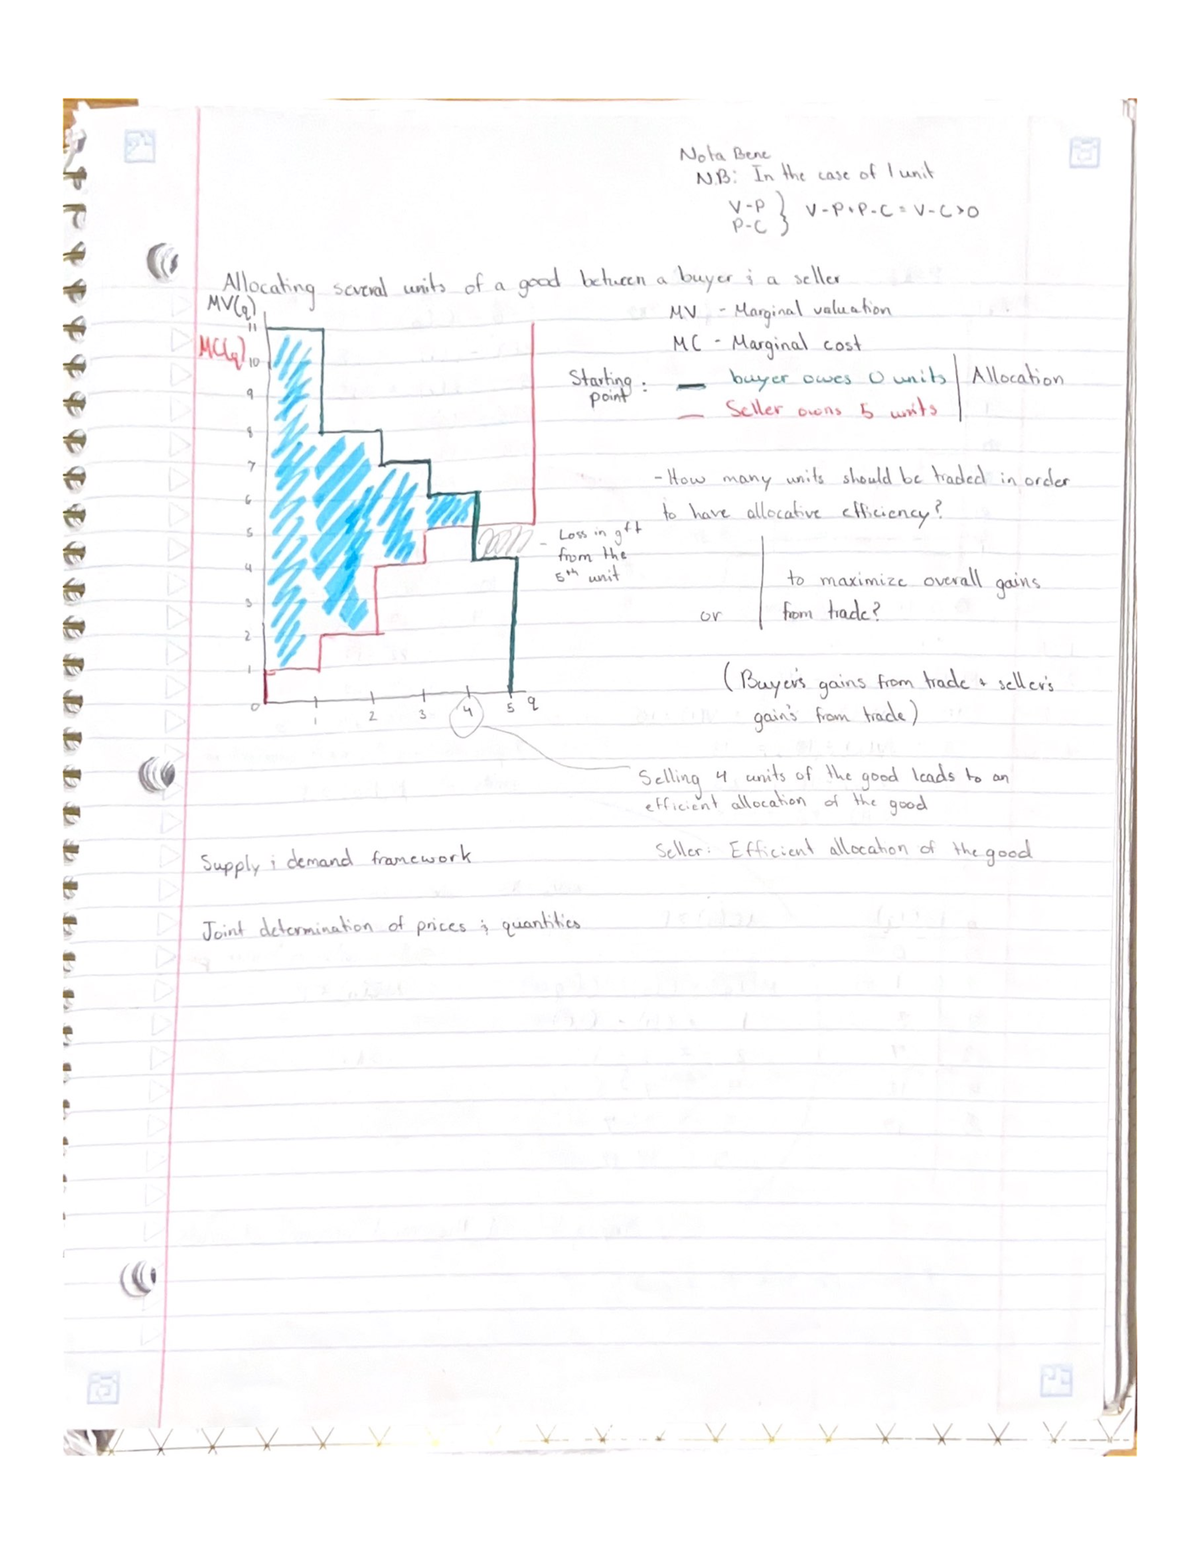 Nota Bene
N.B: In the case of 1 unit
V-P } V-P+P-C = V-C>0
P-C
Allocating several units of a good between a buyer & a seller
MV(q)
MC(q)
11
10
9
8
7
6
5
4
3
2
1
0
1 2 3 4 5 q
MV - Marginal valuation
MC - Marginal cost
Starting point : buyer owes 0 units | Allocation
Seller owns 5 units
- How many units should be traded in order
to have allocative efficiency?
Loss in gft
from the
5th unit
or
to maximize overall gains
from trade?
(Buyer's gains from trade + seller's
gain's from trade)
Selling 4 units of the good leads to an
efficient allocation of the good
Supply & demand framework
Seller: Efficient allocation of the good
Joint determination of prices & quantities